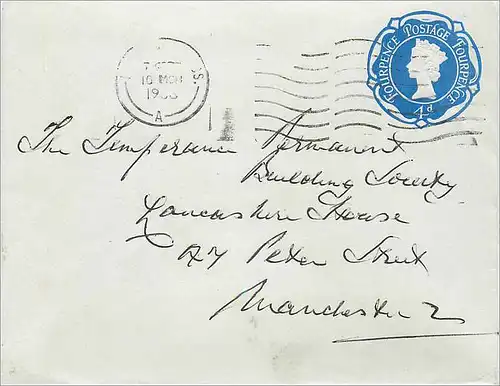 FOURPENCE POSTAGE FOURPENCE
4d
10
A
The Temperance Permanent
Building Society
Lancashire House
47 Peter Street
Manchester 2